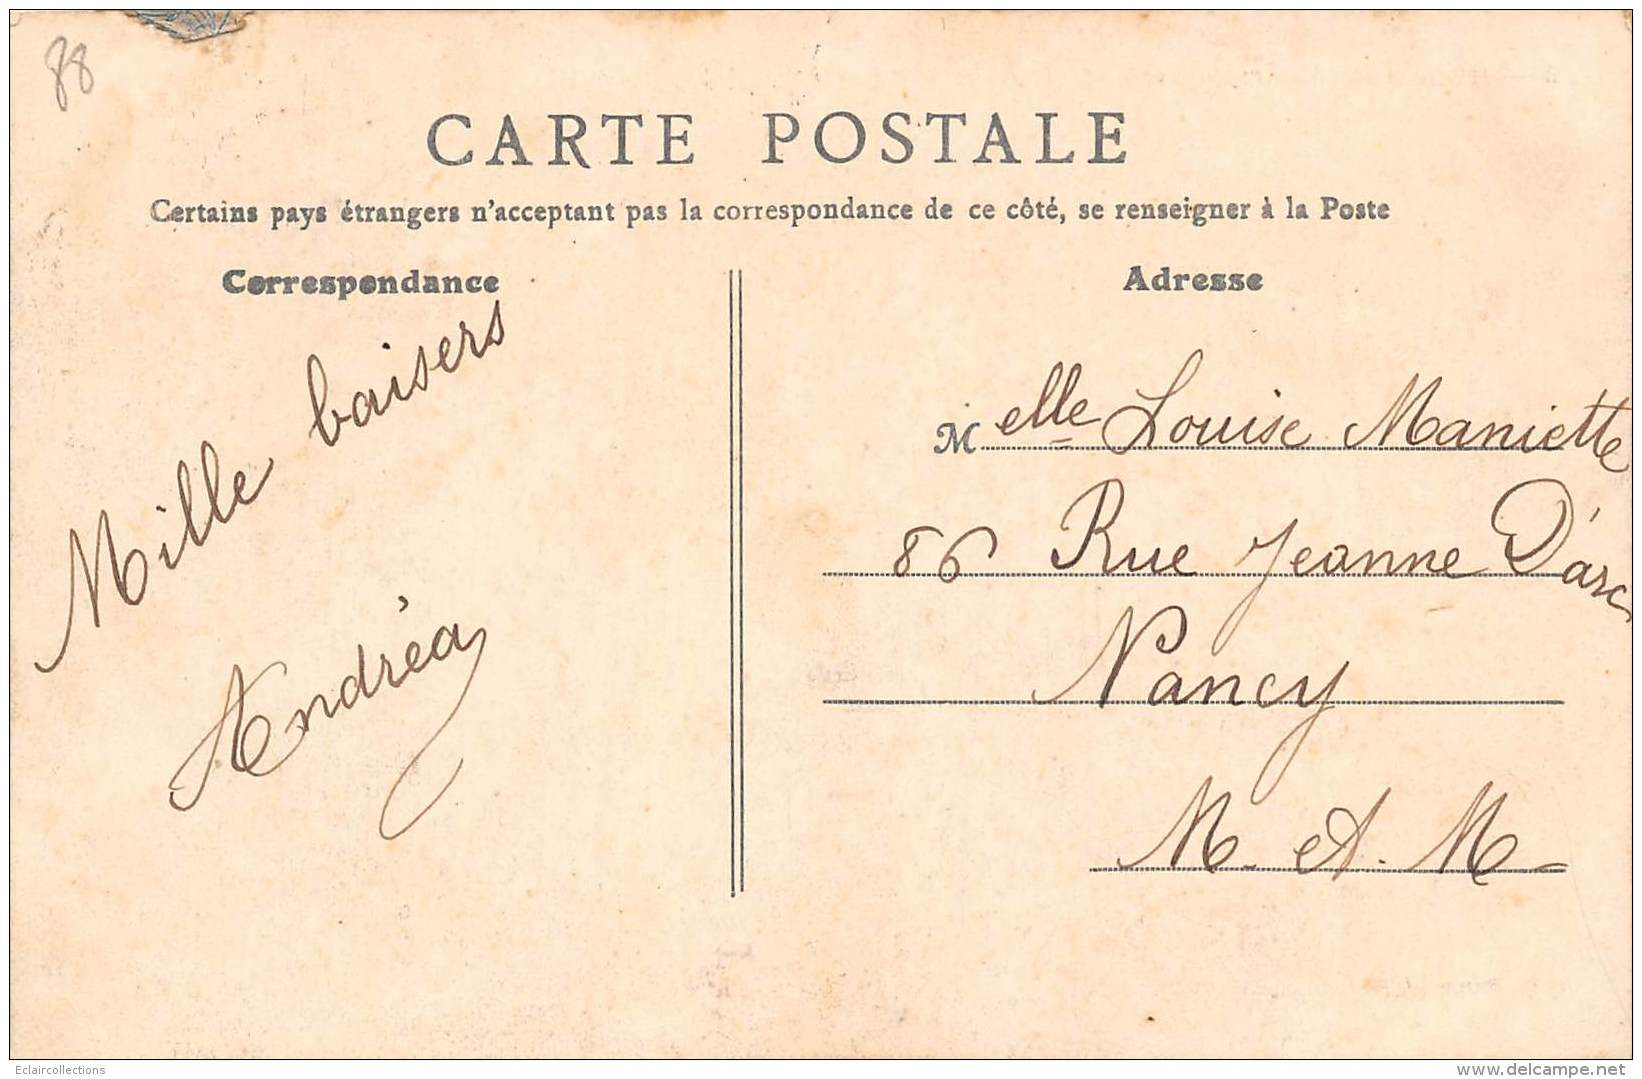 88
CARTE POSTALE
Certains pays étrangers n'acceptant pas la correspondance de ce côté, se renseigner à la Poste
Correspondance
Mille baisers
Andréa
Adresse
Melle Louise Maniette
86 Rue Jeanne D'arc
Nancy
M. et. M
Eclaircollections
www.delcampe.net